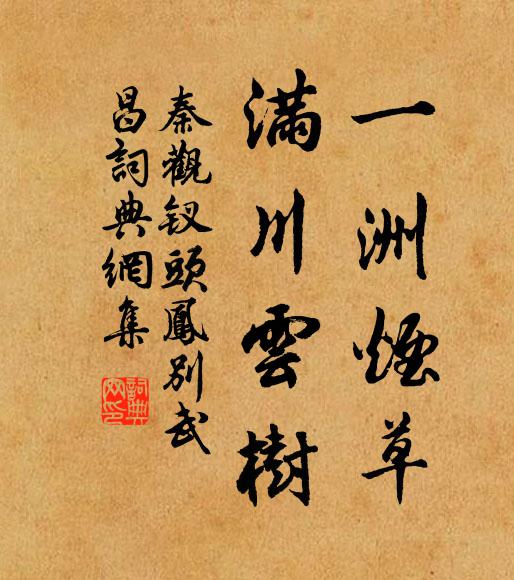 一洲煙草
滿川雲樹
秦觀釵頭鳳別武
昌詞典網集
詞典
网印